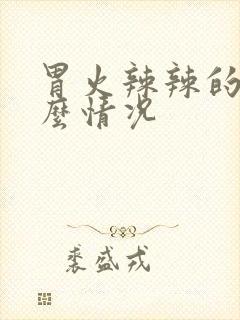 胃火辣辣的
麼情况
裘盛戎